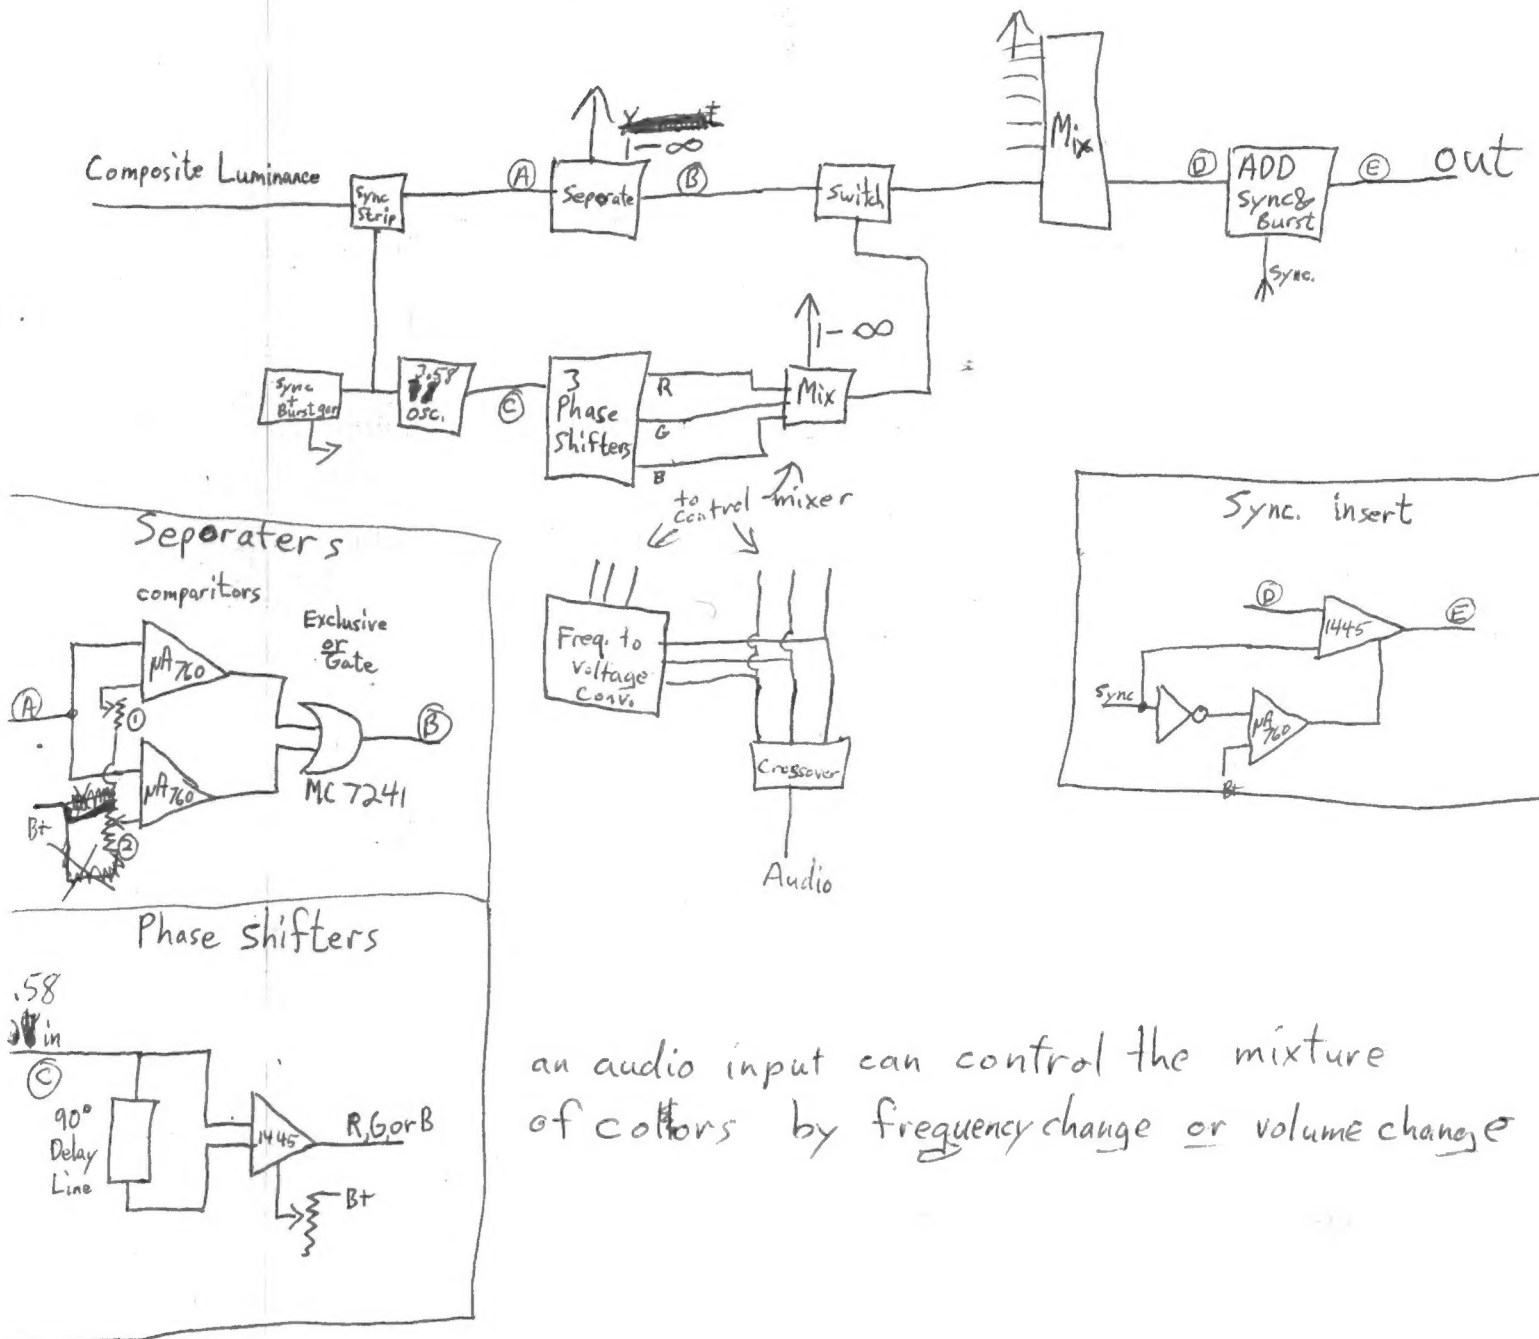 Composite Luminance
Sync
Strip
A
1-∞
Seporate
B
Switch
Mix
D
ADD
Sync&
Burst
E
out
Sync.
Sync
+
Burst gen
3.58
osc.
C
3
Phase
Shifters
R
G
B
1-∞
Mix
to
control mixer
Freq. to
Voltage
Conv.
Crossover
Audio
Seporaters
comparitors
Exclusive
or
Gate
A
µA760
1
µA760
2
B+
MC7241
B
Sync. insert
D
1445
E
Sync
µA
760
B+
Phase Shifters
.58
in
C
90°
Delay
Line
1445
R,G,orB
B+
an audio input can control the mixture
of colors by frequency change or volume change